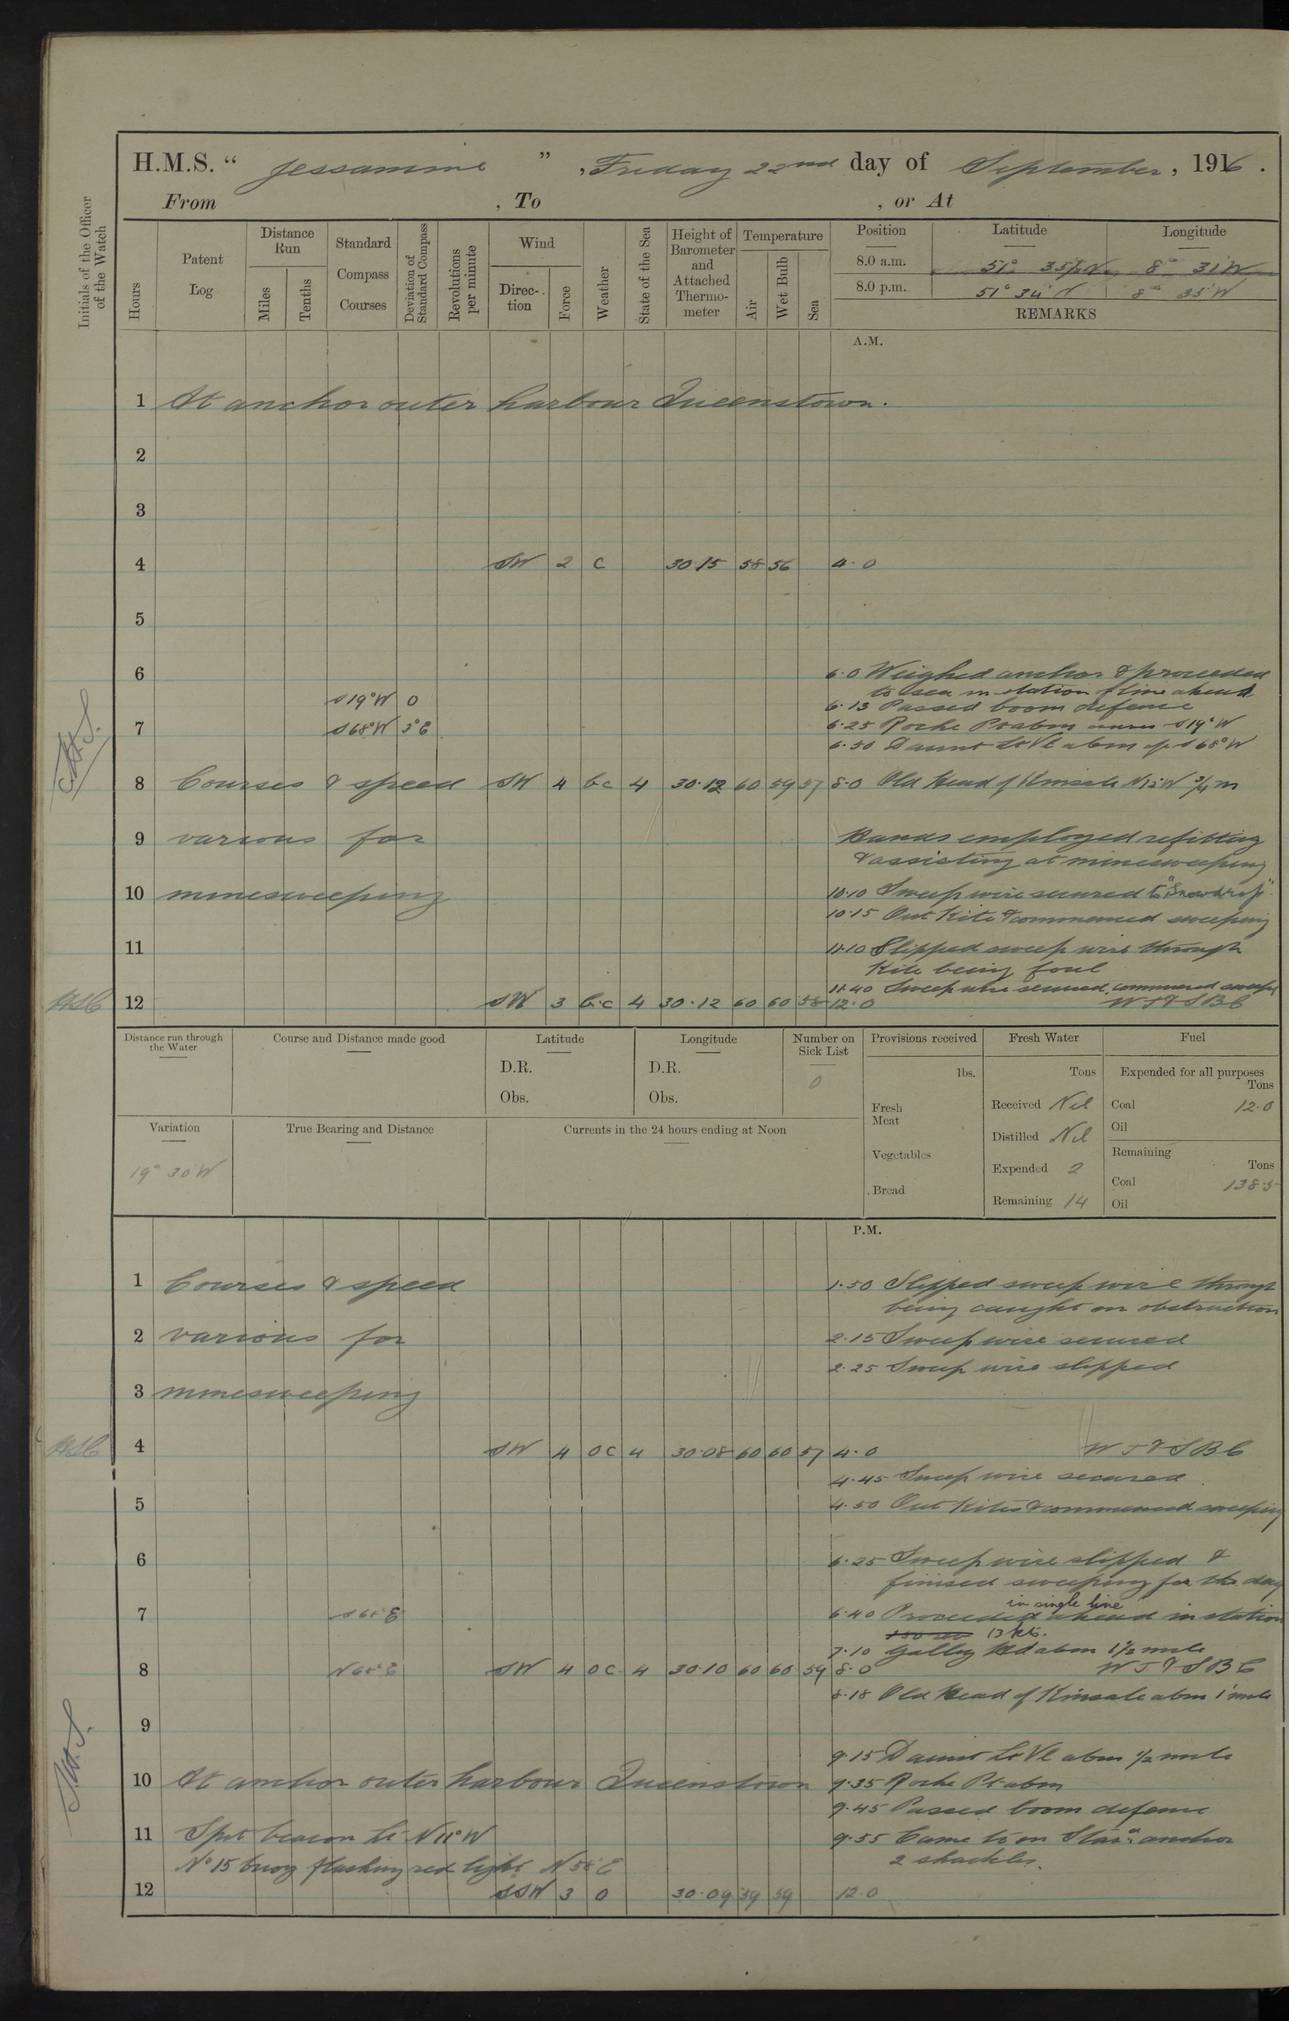 H.M.S. "Jessamine", Friday 22nd day of September, 1916.
From , To , or At
Initials of the Officer of the Watch
Hours
Patent Log
Distance Run
Miles
Tenths
Standard Compass Courses
Deviation of Standard Compass
Revolutions per minute
Wind
Direction
Force
Weather
State of the Sea
Height of Barometer and Attached Thermometer
Temperature
Air
Wet Bulb
Sea
Position Latitude Longitude
8.0 a.m. 51° 35½'N 8° 31'W
8.0 p.m. 51° 34' N 8° 35' W
REMARKS
A.M.
1 At anchor outer harbour Queenstown.
2
3
4 SW 2 c 30.15 58 56 4.0
5
6 6.0 Weighed anchor & proceeded
to sea in station line ahead
S19°W 0 6.13 Passed boom defence
7 S68°W 3°E 6.25 Roche Pt abm S19°W
6.50 Daunt Lt Vl abm S68°W
8 Courses & speed SW 4 bc 4 30.12 60 59 57 8.0 Old Head of Kinsale ¾ m
9 various for Hands employed refitting
& assisting at minesweeping
10 minesweeping 10.10 Sweep wire secured to "Snowdrop"
10.15 Out Kite & commenced sweeping
11 11.10 Slipped sweep wire through
Kite being foul
11.40 Sweep wire secured, commenced sweeping
12 SW 3 bc 4 30.12 60 60 58 12.0 WT&SBC
Distance run through the Water
Course and Distance made good
Latitude
D.R.
Obs.
Longitude
D.R.
Obs.
Number on Sick List
0
Provisions received
lbs.
Fresh Meat
Vegetables
Bread
Fresh Water
Tons
Received Nil
Distilled Nil
Expended 2
Remaining 14
Fuel
Expended for all purposes
Tons
Coal 12.0
Oil
Remaining
Tons
Coal 138.5
Oil
Variation
19° 30'W
True Bearing and Distance
Currents in the 24 hours ending at Noon
P.M.
1 Courses & speed 1.50 Slipped sweep wire through
being caught on obstruction
2 various for 2.15 Sweep wire secured
2.25 Sweep wire slipped
3 minesweeping
4 SW 4 oc 4 30.08 60 60 57 4.0 WT&SBC
4.45 Sweep wire secured
5 4.50 Out Kites & commenced sweeping
6 6.25 Sweep wire slipped &
finised sweeping for the day
in single line
7 6.40 Proceeded ahead in station
13 kts.
7.10 Galley Hd abm 1½ mile
8 SW 4 oc 4 30.10 60 60 59 8.0 WT&SBC
8.18 Old Head of Kinsale abm 1 mile
9
9.15 Daunt Lt Vl abm ½ mile
10 At anchor outer harbour Queenstown 9.35 Roche Pt abm
9.45 Passed boom defence
11 Spit beacon Lt N11°W 9.55 Came to on Stard anchor
No 15 buoy flashing red light 2 shackles.
12 SSW 3 o 30.09 59 59 12.0